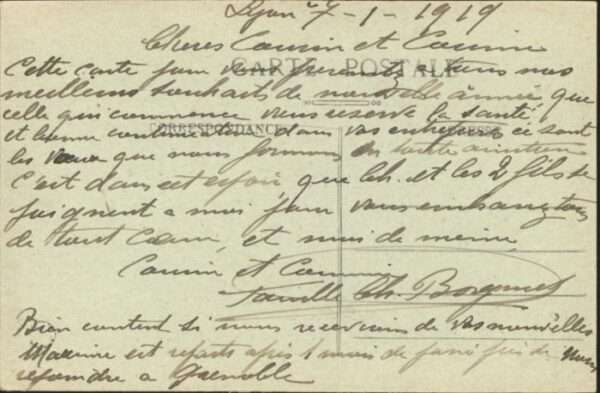 Lyon 7-1-1919
Cheres Cousin et Cousine
CARTE POSTALE
Cette carte pour vous presenter à tous nos
meilleurs souhaits de nouvelle année que
celle qui commence vous reserve la santé
CORRESPONDANCE
et bonne continuation dans vos entreprises ce sont
les vœux que nous formons en toute
C'est dans cet espoir que Ch. et les 2 fils se
joignent a moi pour vous embrasser tous
de tout cœur, et suis de meme
Cousin et Cousine
Famille Ch.
Bien content si nous recevions de vos nouvelles
est reparti après 1 mois de
rejoindre a Grenoble